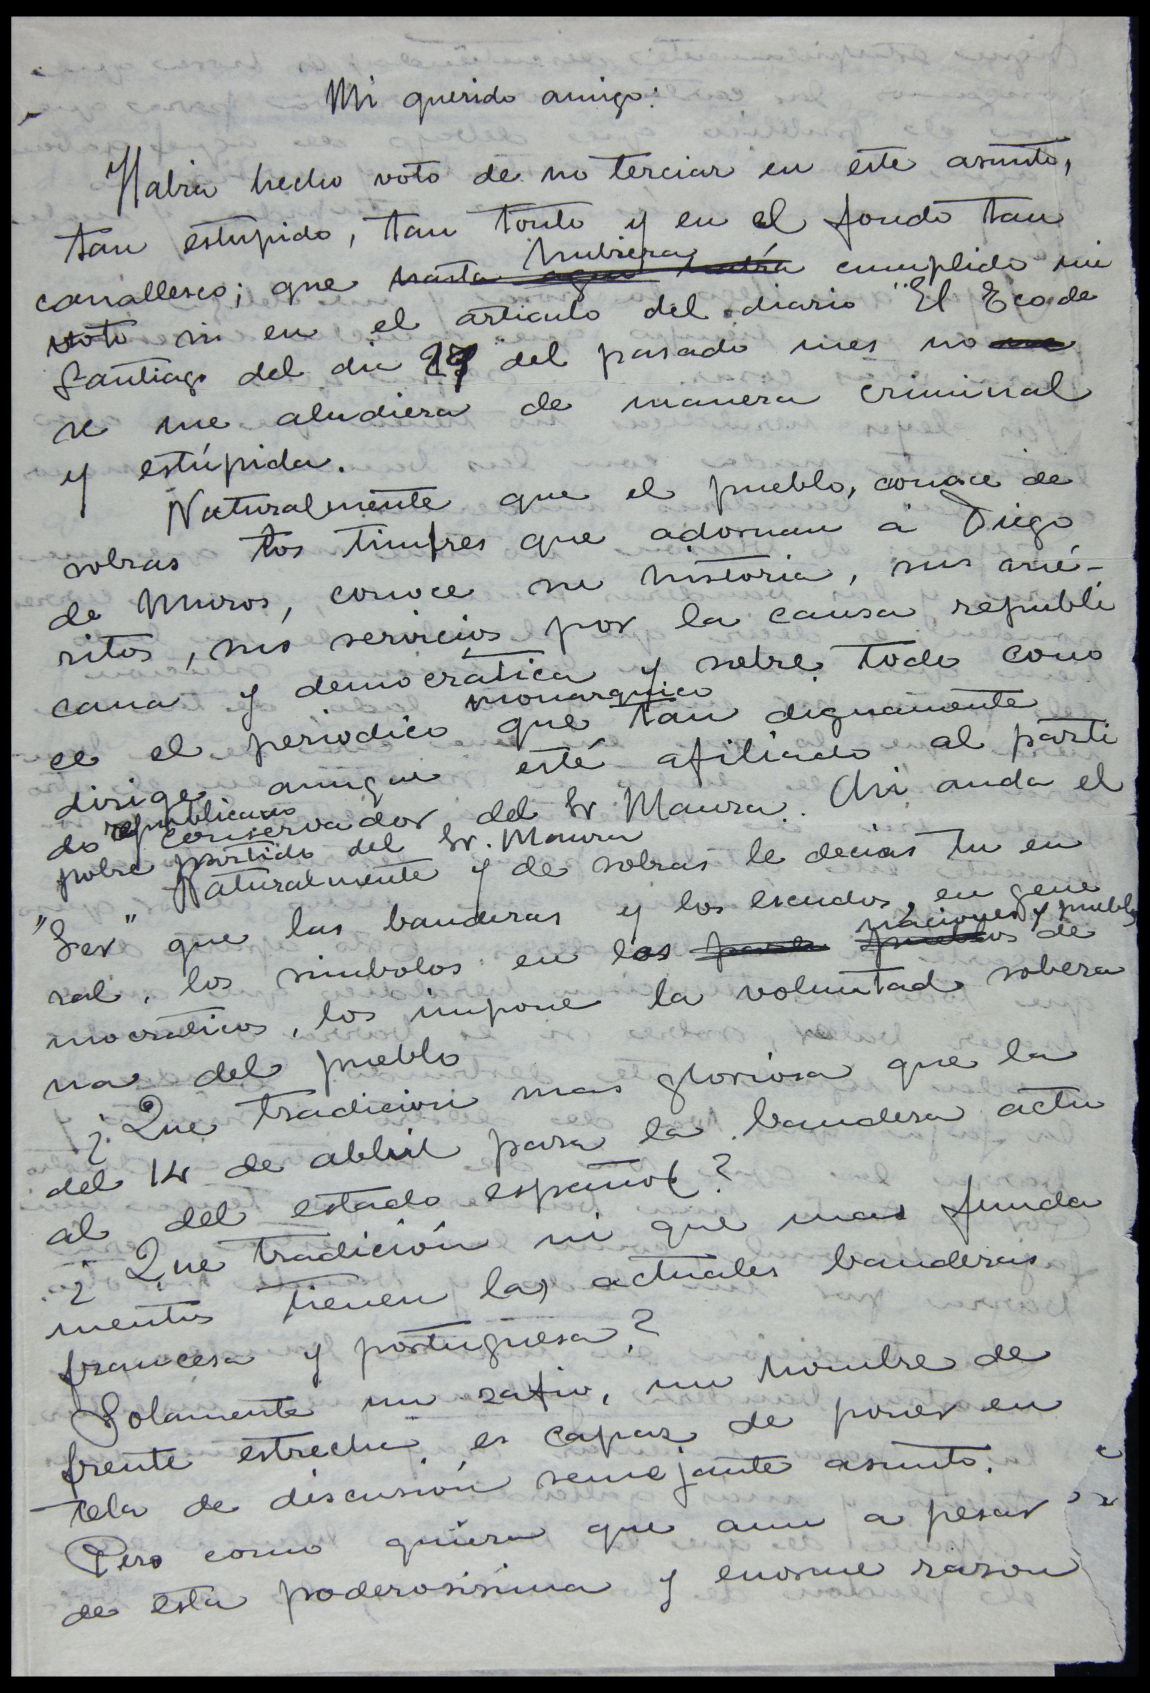 Mi querido amigo:
Habia hecho voto de no terciar en este asunto,
tan estupido, tan tonto y en el fondo tan
hubiera
canallesco; que hasta aqui habia cumplido mi
voto si en el articulo del diario "El Eco de
Santiago del dia 27 del pasado mes no
se me aludiera de manera criminal
y estúpida.
Naturalmente que el pueblo, conoce de
sobras los timbres que adornan á Diego
de Muros, conoce su historia, sus mé-
ritos, sus servicios por la causa republi
cana y democrática y sobre todo cono
monarquico
ce el periodico que tan dignamente
dirige aunque esté afiliado al parti
republicano
do conservador del Sr Maura. Asi anda el
pobre partido del Sr. Maura
Naturalmente y de sobras le decias tu en
"Ser" que las banderas y los escudos, en gene
naciones y pueblos
ral, los simbolos en los pueblos de
mocraticos, los impone la voluntad sobera
na del pueblo
¿Que tradicion mas gloriosa que la
del 14 de abbril para la bandera actu
al del estado español?
¿Que tradición ni que mas funda
mentos tienen las actuales banderas
francesa y portuguesa?
Solamente un zafio, un hombre de
frente estrecha es capaz de poner en
tela de discusión semejante asunto.
Pero como quiera que aun a pesar
de esta poderosisima y enorme razon